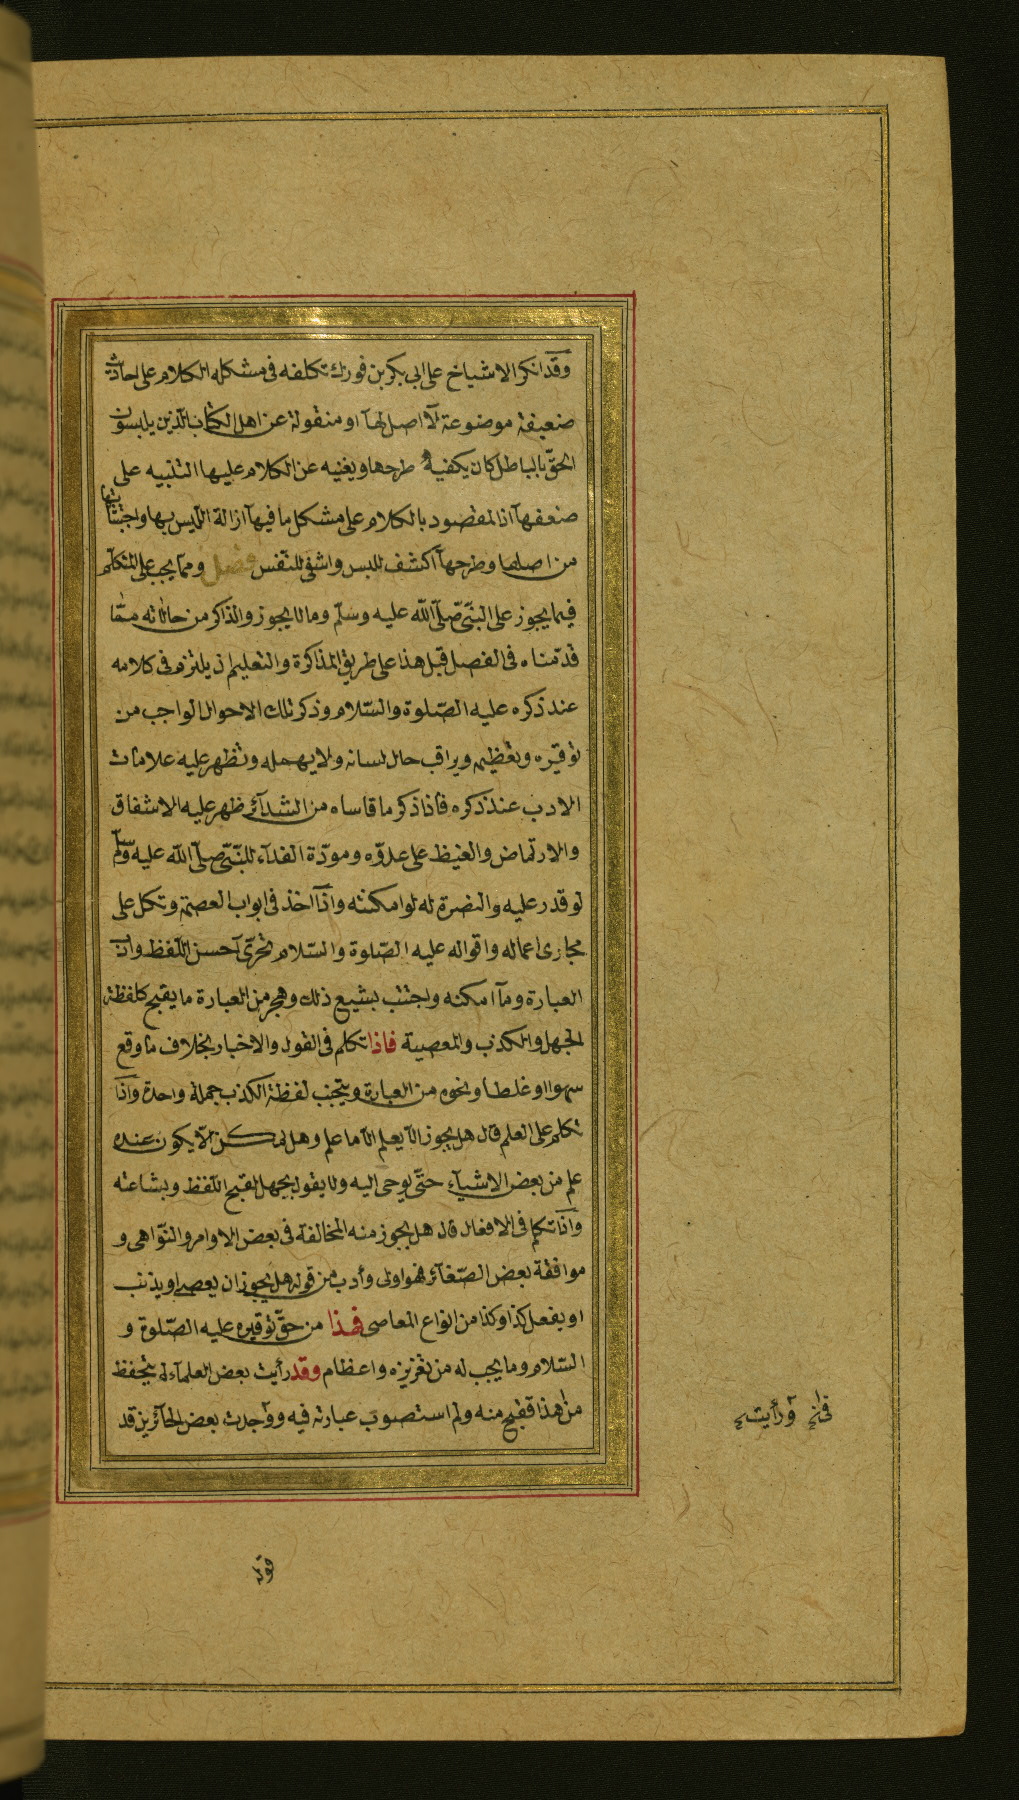 وقد انكر الاشياخ على ابى بكر بن فورك تكلفه فى مشكله الكلام على احاديث
ضعيفة موضوعة لا اصل لها او منقولة عن اهل الكتاب الذين يلبسون
الحق بالباطل كان يكفيه طرحها ويغنيه عن الكلام عليها التنبيه على
ضعفها اذ المقصود بالكلام على مشكل ما فيها ازالة اللبس بها واجتثاثها
من اصلها وطرحها اكشف للبس واشفى للنفس فصل ومما يجب على المتكلم
فيما يجوز على النبى صلى الله عليه وسلم وما لا يجوز والذاكر من حالاته ممّا
قدمناه فى الفصل قبل هذا على طريق المذاكرة والتعليم ان يلتزم فى كلامه
عند ذكره عليه الصلوة والسلام وذكر تلك الاحوال الواجب من
توقيره وتعظيمه ويراقب حال لسانه ولا يهمله وتظهر عليه علامات
الادب عند ذكره فاذا ذكر ما قاساه من الشدآئد ظهر عليه الاشفاق
والارتماض والغيظ على عدوّه ومودّة الفدآء للنبى صلى الله عليه وسلم
لو قدر عليه والنصرة له لو امكنته واذا اخذ فى ابواب العصمة وتكلم على
مجارى اعماله واقواله عليه الصلوة والسلام تحرّى احسن اللفظ وادب
العبارة وما امكنه واجتنب بشيع ذلك وهجر من العبارة ما يقبح كلفظة
الجهل والكذب والمعصية فاذا تكلم فى القول والاخبار بخلاف ما وقع
سهوا او غلطا ونحوه من العبارة ويتجنب لفظة الكذب جملة واحدة واذا
تكلم على العلم قال هل يجوز الا يعلم الا ما علم وهل يمكن الا يكون عنده
علم من بعض الاشيآء حتى يوحى اليه ولا يقول بجهل لقبح اللفظ وبشاعته
واذا تكلم فى الافعال قال هل يجوز منه المخالفة فى بعض الاوامر والنواهى و
موافقة بعض الصغآئر فهو اولى وأدب من قوله هل يجوز ان يعصى او يذنب
او يفعل كذا وكذا من انواع المعاصى فهذا من حق توقيره عليه الصلوة و
السلام وما يجب له من تعزيزه واعظام وقد رأيت بعض العلمآء لم يتحفظ
من هذا فقبح منه ولم استصوب عبارته فيه ووجدت بعض الجآئرين قد
ورأيت
قوله